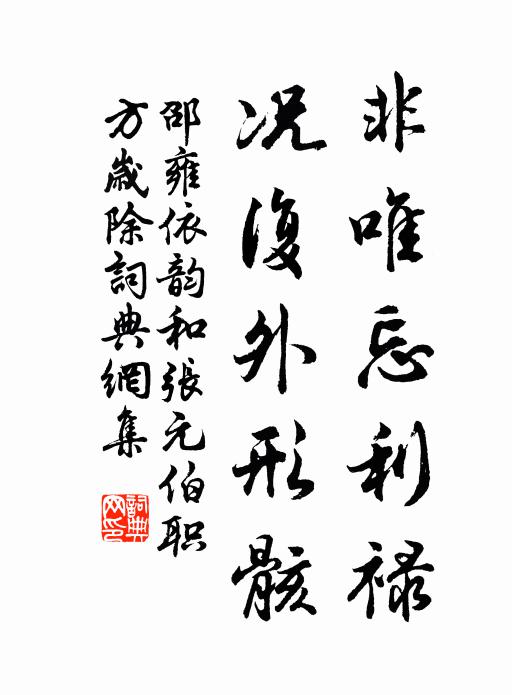 非唯忘利禄
况復外形骸
邵雍依韵和張元伯职
方歲除詞典網集
詞典网印